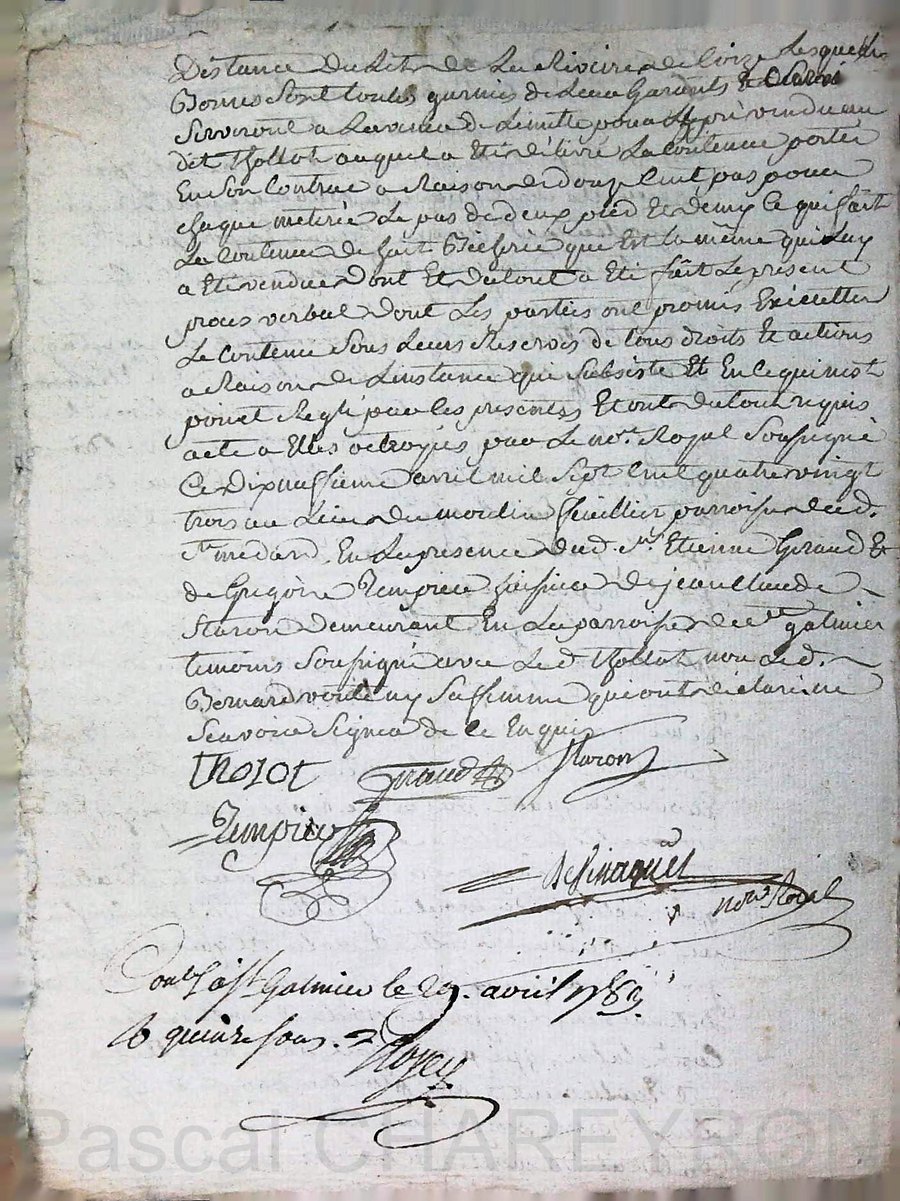 Distance du Lit de La Riviere de Coize Lesquelles
Bornes sont toutes garnies de Leur Garants Et
Serviront a Lavenir de Limitte pour Le pré vendu au
dit thollot auquel a Eté délivré La Contenue portée
En Son Contrat a Raison de douze Cent pas pour
chaque meterée Le pas de deux pied Et demy Ce qui fait
La Contenue de huit Bicherée que Est la même qui Luy
a Eté vendue Dont Et du tout a Eté fait Le present
proces verbal Dont Les parties ont promis Executter
Le Contenu Sous Leurs Reserves de tous droits Et actions
a Raison de Linstance que Subsiste Et En Ce qui nest
point Reglé par les presentes Et ont du tout requis
acte a Elles octroyés par Le no.re Royal Soussigné
Ce Dixneufvieme avril mil Sept Cent quatre vingt
trois au Lieu du moulin parroisse dud.
St medard En La presence dud. Sr Etienne Giraud Et
de Grigoire Tempier de jean Claude
Staron demeurant En La parroisse de St galmier
temoins Soussigné avec Led. thollot non Led.
Bernard Sa femme qui ont declaré ne
Scavoir Signer de Ce Enquis
THOLOT Giraud Staron
Tempier
nore Royal
Conlé a St Galmier le 29. avril 1783.
R quinze sous.
Pascal CHAREYRON